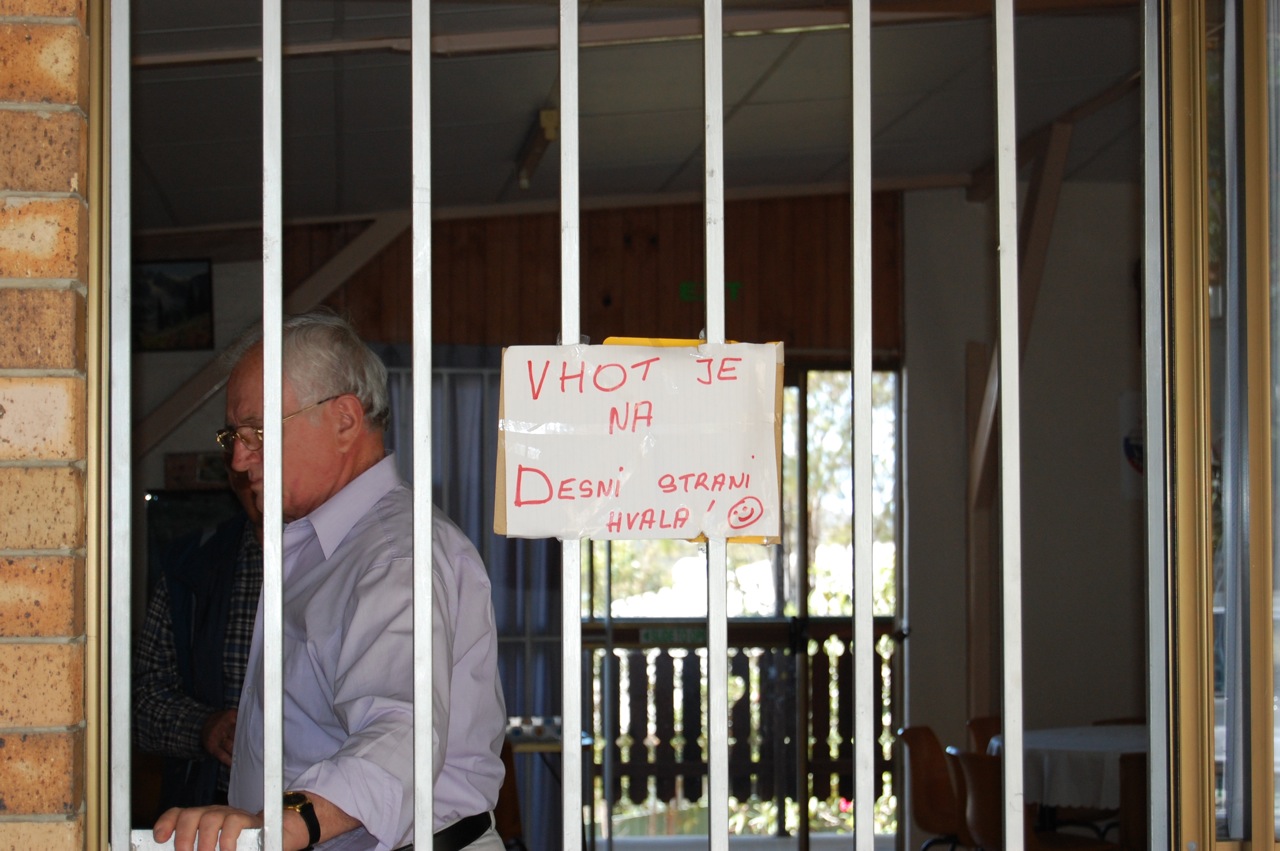 EXIT
VHOT JE
NA
DESNi STRANi
HVALA!